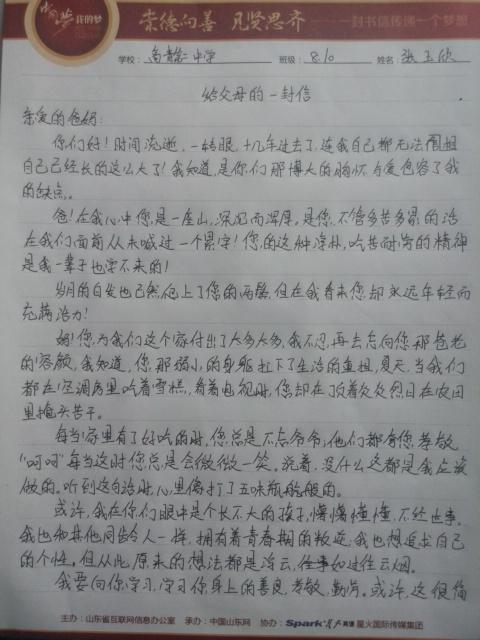 中国梦 我的梦
崇德向善 见贤思齐 ——一封书信传递一个梦想
学校: 高青 中学 班级: 8.10 姓名 张玉欣
给父母的一封信
亲爱的爸妈:
你们好!时间流逝,一转眼,十几年过去了,连我自己都无法
自己已经长的这么大了!我知道,是你们那博大的胸怀与爱包容了我
的缺点。
爸!在我心中您是一座山,深沉而浑厚。是您,不管多苦多累的活
在我们面前从未喊过一个累字!您的这种淳朴,吃苦耐劳的精神
是我一辈子也学不来的!
岁月的白发也已然爬上了您的两鬓,但在我看来您却永远年轻而
充满活力!
妈!您为我们这个家付出了太多太多,我不忍再去忘向您那苍老
的容颜,我知道,您那弱小的身躯扛下了生活的重担,夏天,当我们
都在空调房里吃着雪糕,看着电视时,您却在顶着炎炎烈日在农田
里埋头苦干。
每当家里有了好吃的时,您总是不忘爷爷;他们都夸您孝敬
“呵呵”每当这时您总是会微微一笑。说着,没什么这都是我应该
做的。听到这句话时,心里像打了五味瓶般的。
或许,我在你们眼中是个长不大的孩子,懵懵懂懂,不经世事。
我也和其他同龄人一样,拥有着青春期的叛逆,我也想追求自己
的个性。但从此,原来的想法都是浮云,往事如过往云烟。
我要向你学习,学习你身上的善良,孝敬,勤劳。或许,这很简
主办:山东省互联网信息办公室 承办:中国山东网 协办:Spark 星火英语 星火国际传媒集团